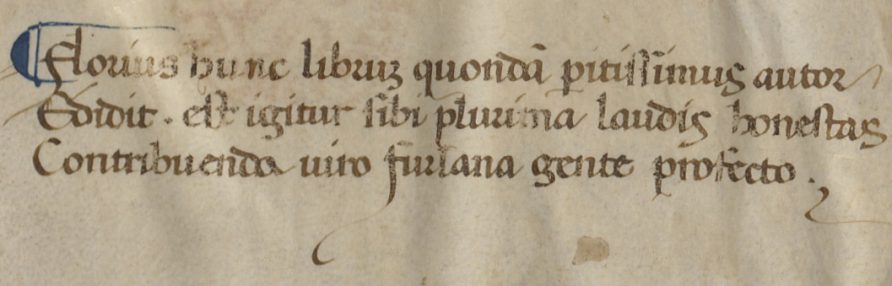 Florius hunc libruꝫ quondā peritissimus autor
Edidit. est igitur sibi plurima laudis honestas
Contribuenda uiro furlana gente profecto.